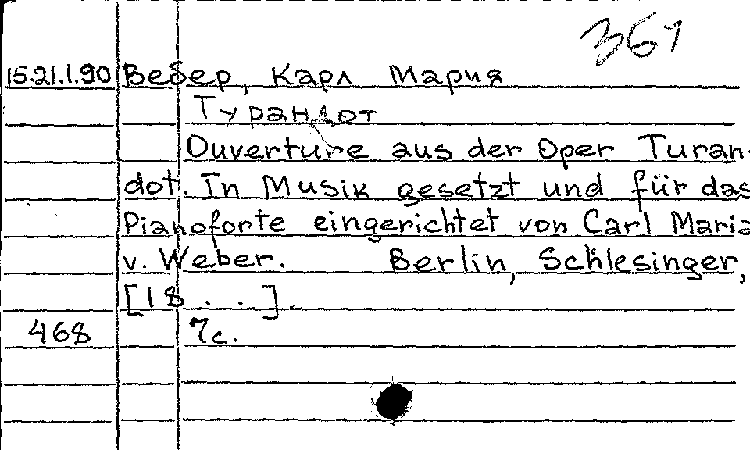 361
15.21.1.90 Вебер, Карл Мария
Турандот
Ouverture aus der Oper Turan-
dot. In Musik gesetzt und für das
Pianoforte eingerichtet von Carl Maria
v. Weber. Berlin, Schlesinger,
[18 . . ].
468 7с.